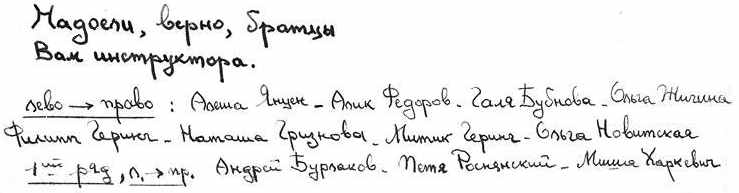 Надоели, верно, братцы
Вам инструктора.
лево → право : Алеша Янцен - Алик Федоров - Галя Бубнова - Ольга Жигина
Филипп Геринг - Наташа Грязнова - Митик Геринг - Ольга Новитская
1ый ряд, л. → пр. Андрей Бурлаков - Петя Роснянский - Миша Харкевич